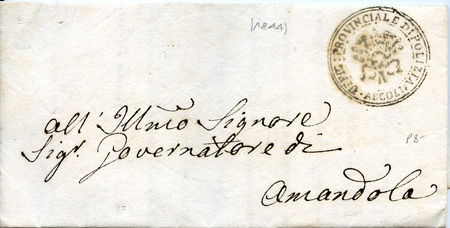 (1844)
UFFIC: PROVINCIALE DI POLIZIA
ASCOLI
all' Illmo Signore
Sigr. Governatore di
Amandola